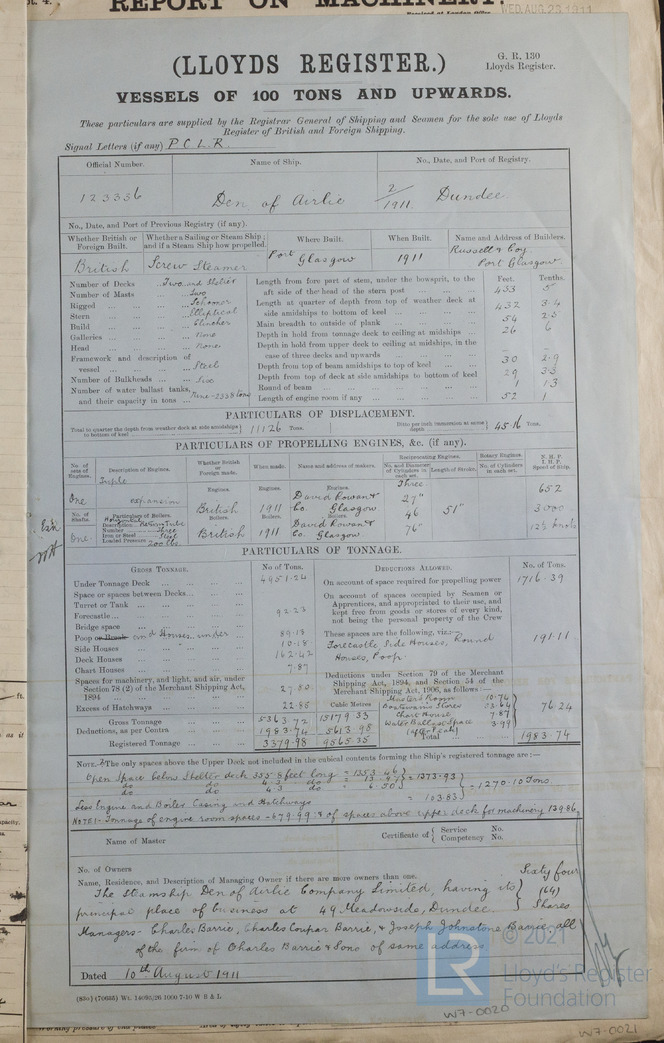 REPORT ON MACHINERY.
WED. AUG. 23 1911
(LLOYDS REGISTER.)
G. R. 130
Lloyds Register.
VESSELS OF 100 TONS AND UPWARDS.
These particulars are supplied by the Registrar General of Shipping and Seamen for the sole use of Lloyds
Register of British and Foreign Shipping.
Signal Letters (if any) P C L R.
Official Number. Name of Ship. No., Date, and Port of Registry.
123336 Den of Airlie 2/1911 Dundee
No., Date, and Port of Previous Registry (if any).
Whether British or Foreign Built. Whether a Sailing or Steam Ship; and if a Steam Ship how propelled. Where Built. When Built. Name and Address of Builders.
British Screw Steamer Port Glasgow 1911 Russell & Coy Port Glasgow
Number of Decks Two and Shelter
Number of Masts Two
Rigged Schooner
Stern Elliptical
Build Clincher
Galleries None
Head None
Framework and description of
vessel Steel
Number of Bulkheads Six
Number of water ballast tanks,
and their capacity in tons Nine - 2338 tons
Feet. Tenths.
Length from fore part of stem, under the bowsprit, to the
aft side of the head of the stern post 433 5
Length at quarter of depth from top of weather deck at
side amidships to bottom of keel 432 3.4
Main breadth to outside of plank 54 2.5
Depth in hold from tonnage deck to ceiling at midships 26 6
Depth in hold from upper deck to ceiling at midships, in the
case of three decks and upwards
Depth from top of beam amidships to top of keel 30 2.9
Depth from top of deck at side amidships to bottom of keel 29 3.3
Round of beam 1 1.3
Length of engine room if any 52 1
PARTICULARS OF DISPLACEMENT.
Total to quarter the depth from weather deck at side amidships to bottom of keel 11126 Tons. Ditto per inch immersion at same depth 45.16 Tons.
PARTICULARS OF PROPELLING ENGINES, &c. (if any).
No. of sets of Engines. Description of Engines. Whether British or Foreign made. When made. Name and address of makers. Reciprocating Engines. Rotary Engines. N. H. P. I. H. P. Speed of Ship.
No. and Diameter of Cylinders in each set. Length of Stroke. No. of Cylinders in each set.
One Triple expansion
Engines. British Engines. 1911 Engines. David Rowan & Co. Glasgow
Three 27" 46 76" 51"
652
3000
12½ knots
No. of Shafts. Particulars of Boilers.
One
Description Horizontal Return Tube
Number Three
Iron or Steel Steel
Loaded Pressure 200 lbs.
Boilers. British Boilers. 1911 Boilers. David Rowan & Co. Glasgow
PARTICULARS OF TONNAGE.
GROSS TONNAGE. No of Tons.
Under Tonnage Deck 4951.24
Space or spaces between Decks
Turret or Tank
Forecastle 92.23
Bridge space
Poop or Break and Houses under 89.13
Side Houses 10.18
Deck Houses 162.42
Chart Houses 7.87
Spaces for machinery, and light, and air, under
Section 78 (2) of the Merchant Shipping Act,
1894 27.80
Excess of Hatchways 22.85
Cubic Metres
Gross Tonnage 5363.72 15179.33
Deductions, as per Contra 1983.74 5613.98
Registered Tonnage 3379.98 9565.35
DEDUCTIONS ALLOWED. No. of Tons.
On account of space required for propelling power 1716.39
On account of spaces occupied by Seamen or
Apprentices, and appropriated to their use, and
kept free from goods or stores of every kind,
not being the personal property of the Crew
These spaces are the following, viz:—
Forecastle Side Houses, Round
Houses, Poop. 191.11
Deductions under Section 79 of the Merchant
Shipping Act, 1894, and Section 54 of the
Merchant Shipping Act, 1906, as follows:—
Masters Room 10.76
Boatswain's Stores 53.64
Chart House 7.87
Water Ballast Space 3.97
(after peak) 76.24
Total 1983.74
NOTE.—The only spaces above the Upper Deck not included in the cubical contents forming the Ship's registered tonnage are:—
Open Space below Shelter deck 335.8 feet long = 1353.46
do do 4.3 do = 13.97 = 1373.93
do do 4.3 do = 6.50 = 1270.10 Tons.
Less Engine and Boiler Casing and Hatchways = 103.83
NOTE:- Tonnage of engine room spaces - 679.49 & of spaces above upper deck for machinery 139.86
Name of Master Certificate of Service No. Competency No.
No. of Owners
Name, Residence, and Description of Managing Owner if there are more owners than one.
The Steamship Den of Airlie Company Limited, having its Sixty four
principal place of business at 49 Meadowside, Dundee. (64) Shares
Managers - Charles Barrie, Charles Coupar Barrie, & Joseph Johnstone Barrie, all
of the firm of Charles Barrie & Sons of same address
Dated 10th August 1911
(830) (70655) Wt. 14095/26 1000 7-10 W B & L
© 2021
LR
Lloyd's Register
Foundation
W7-0020
W7-0021